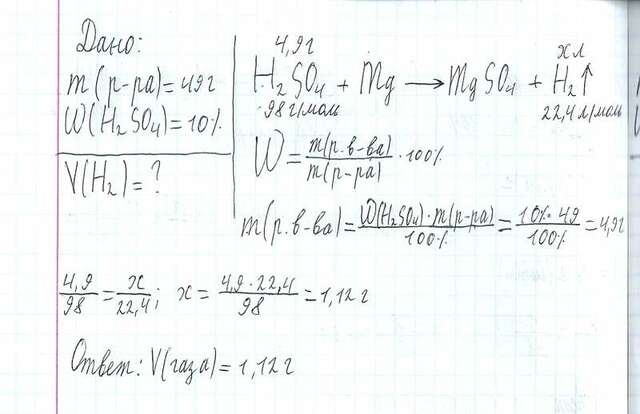 Дано:
m(р-ра)=49г
W(H₂SO₄)=10%
V(H₂)=?
4,9г
x л
H₂SO₄ + Mg → MgSO₄ + H₂↑
98 г/моль
22,4 л/моль
W = m(р.в-ва)/m(р-ра) · 100%
m(р.в-ва) = W(H₂SO₄)·m(р-ра)/100% = 10%·49/100% = 4,9г
4,9/98 = x/22,4; x = 4,9·22,4/98 = 1,12 г
Ответ: V(газа) = 1,12 г